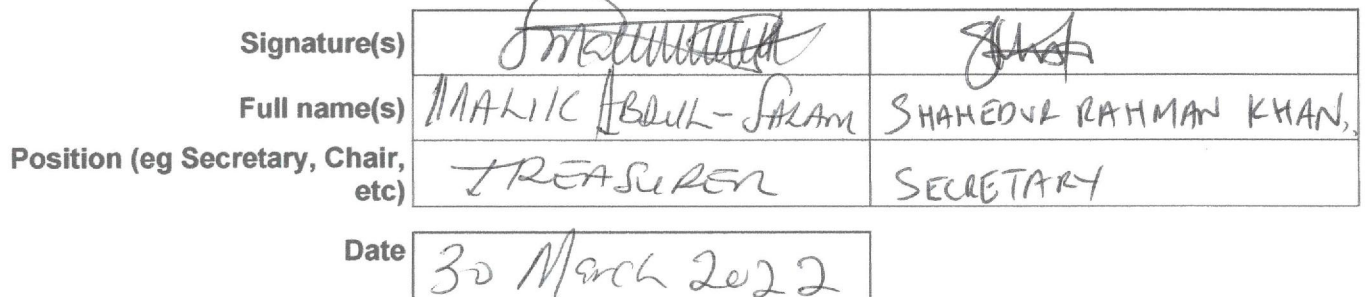 Signature(s)
Full name(s) MALIK ABDUL-SALAM SHAHEDUR RAHMAN KHAN,
Position (eg Secretary, Chair, etc) TREASURER SECRETARY
Date 30 March 2022